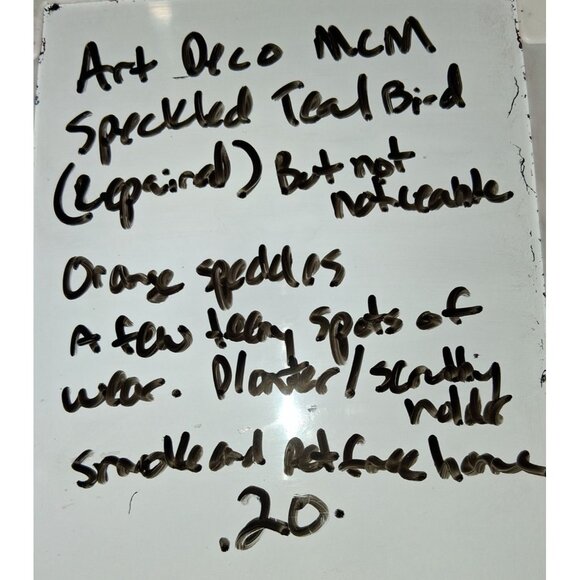 Art Deco MCM
Speckled Teal Bird
(repaired) But not
noticeable
Orange speckles
A few teeny spots of
wear. Planter / scrubby
holder
Smoke and pet free home
.20.